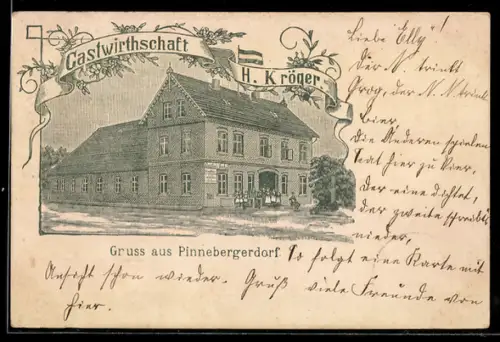 Gastwirthschaft
H. Kröger
Gruss aus Pinnebergerdorf
Liebe "Elly"!
Der N. trinkt
Grog, der N. N. trink
bier,
Die Anderen spielen
Scat hier zu Vier,
Der eine dichtet,
der zweite schreibt's
nieder,
So folgt eine Karte mit
Ansicht schon wieder. Gruß viele Freunde von
hier.